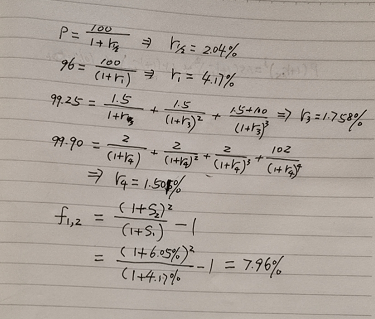 P = 100/(1+r½) ⇒ r½ = 2.04%
96 = 100/(1+r₁) ⇒ r₁ = 4.17%
99.25 = 1.5/(1+r₃) + 1.5/(1+r₃)² + (1.5+100)/(1+r₃)³ ⇒ r₃ = 1.758%
99.90 = 2/(1+r₄) + 2/(1+r₄)² + 2/(1+r₄)³ + 102/(1+r₄)⁴
⇒ r₄ = 1.505%
f₁,₂ = (1+S₂)²/(1+S₁) - 1
= (1+6.05%)²/(1+4.17% - 1 = 7.96%